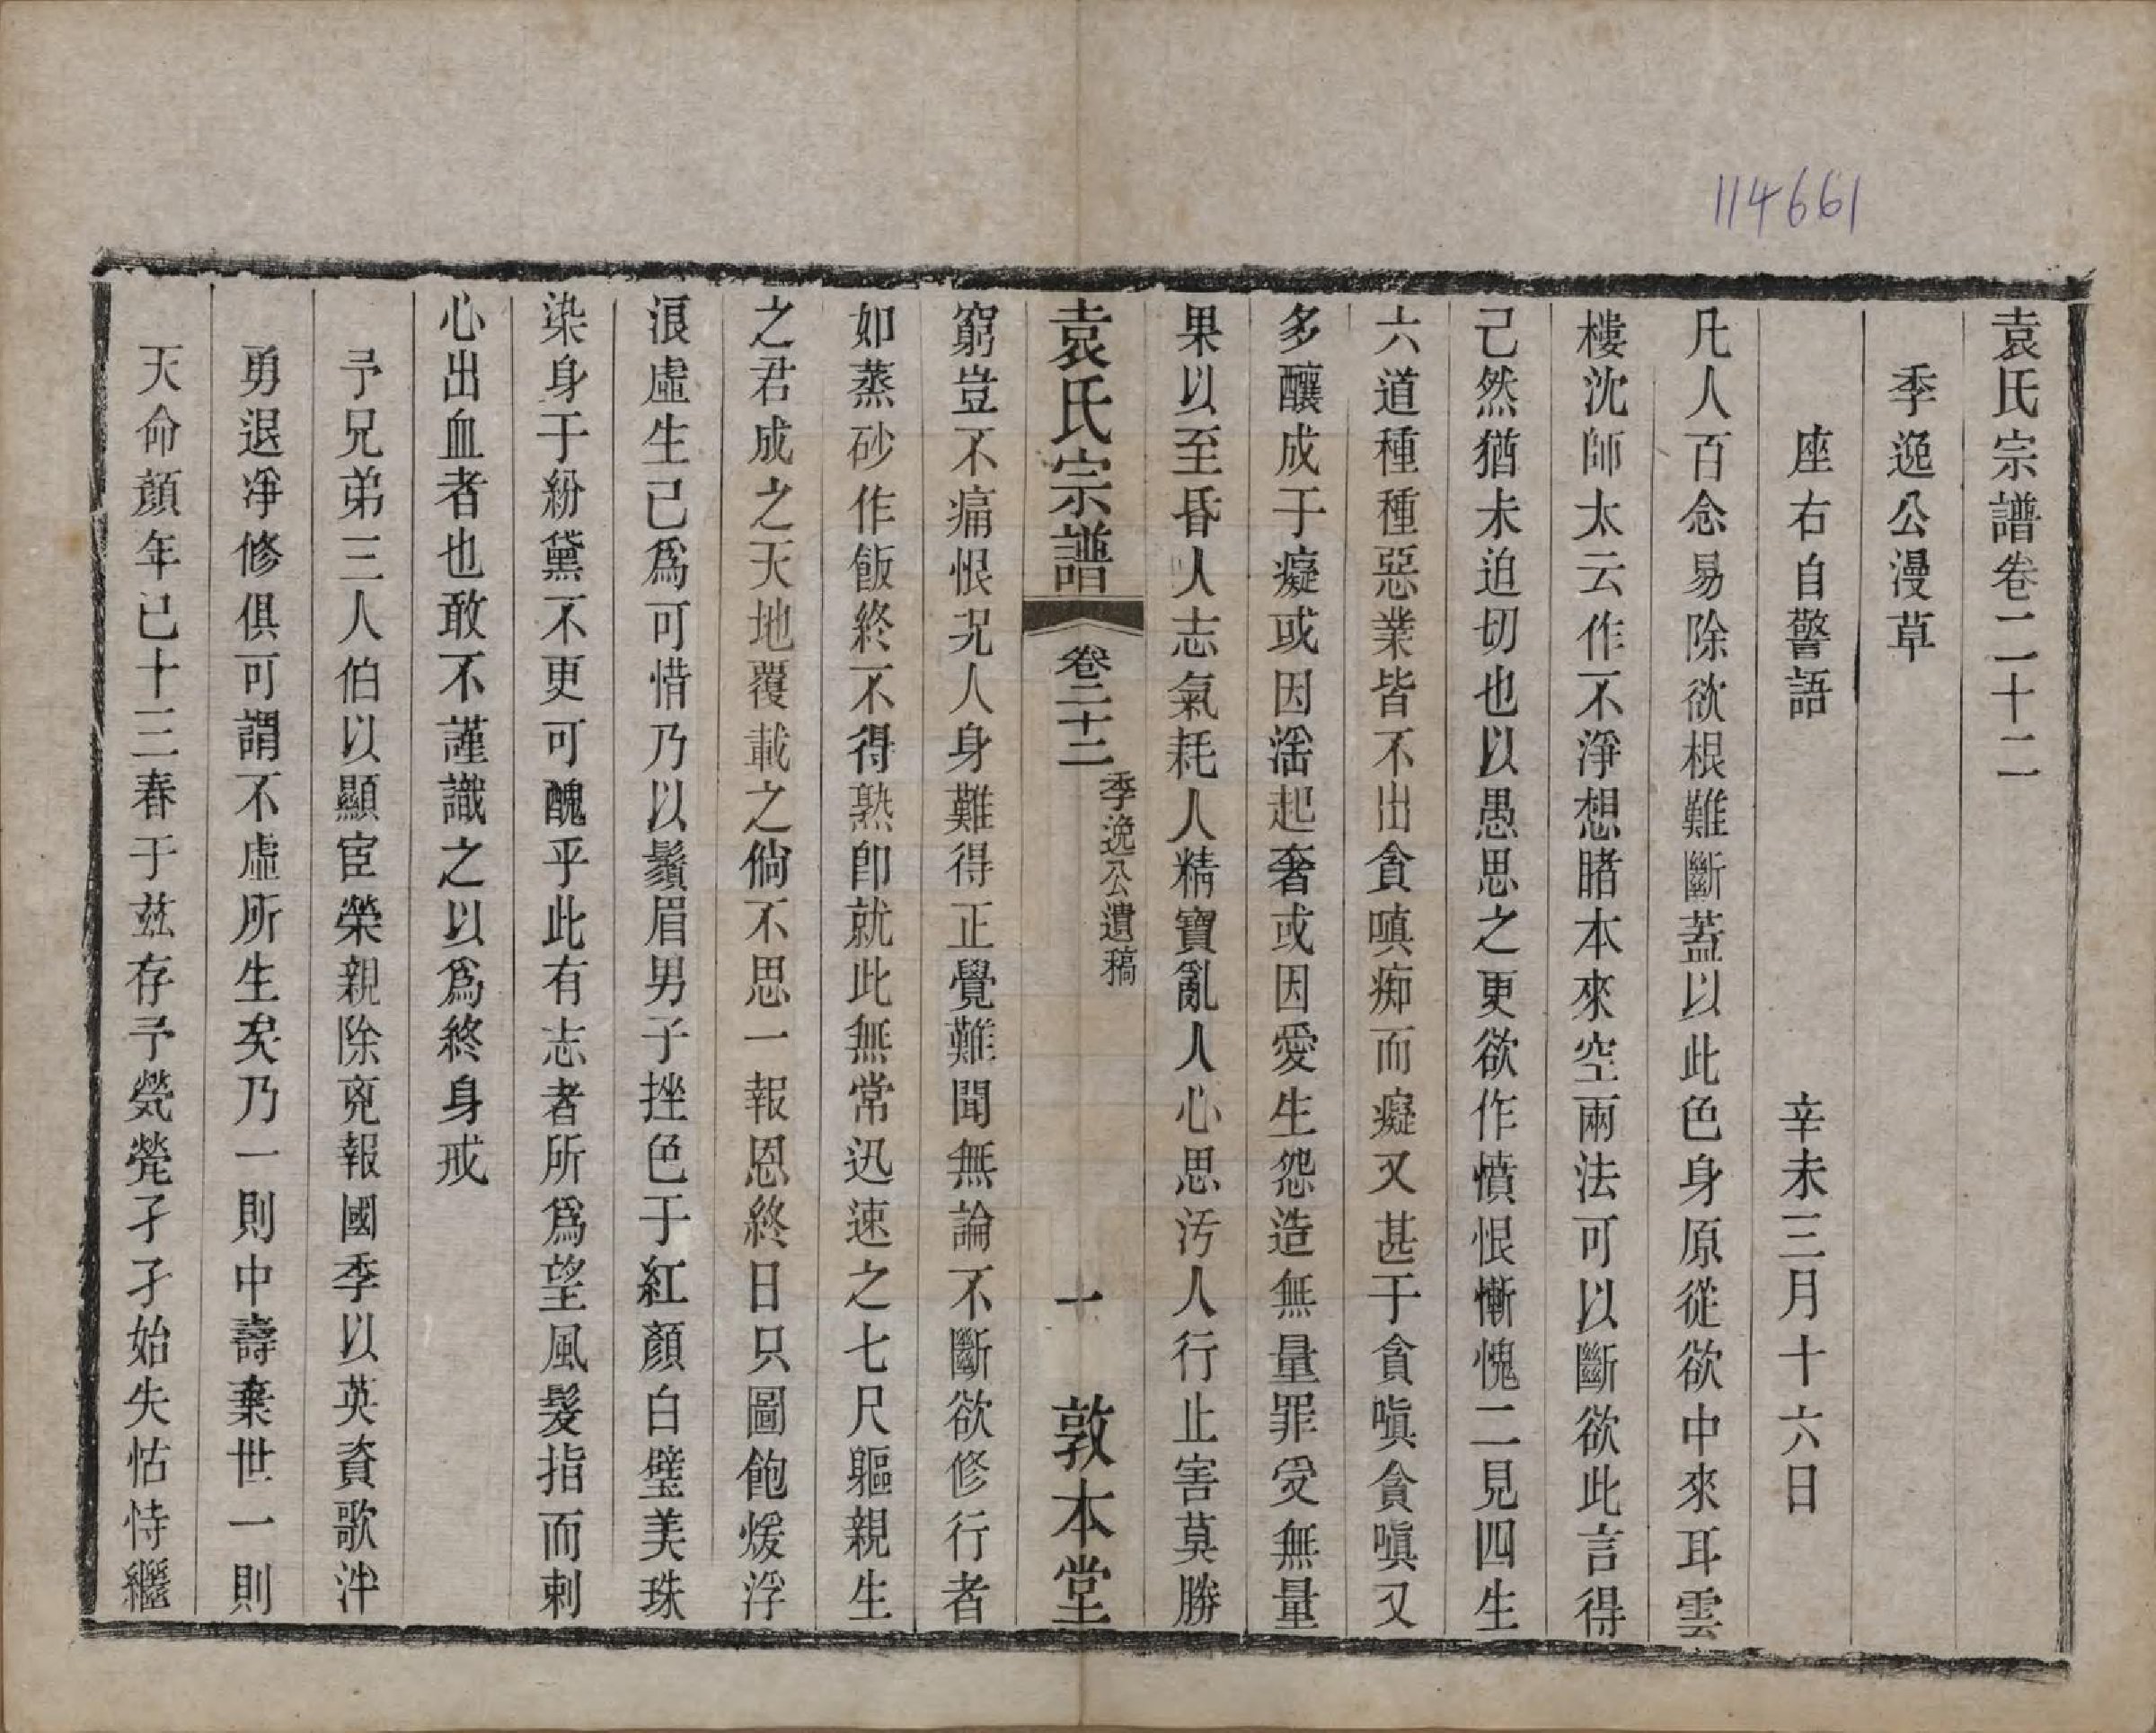 114661
袁氏宗譜卷二十二
季逸公漫草
座右自警語 辛未三月十六日
凡人百念易除欲根難斷蓋以此色身原從欲中來耳雲
樓沈師太云作不淨想睹本來空兩法可以斷欲此言得
己然猶未迫切也以愚思之更欲作憤恨慚愧二見四生
六道種種惡業皆不出貪嗔痴而癡又甚于貪嗔貪嗔又
多釀成于癡或因淫起奢或因愛生怨造無量罪受無量
果以至昏人志氣耗人精寶亂人心思汚人行止害莫勝
袁氏宗譜 卷二十二 季逸公遺稿 一 敦本堂
窮豈不痛恨況人身難得正覺難聞無論不斷欲修行者
如蒸砂作飯終不得熟卽就此無常迅速之七尺軀親生
之君成之天地覆載之倘不思一報恩終日只圖飽煖浮
浪虛生已爲可惜乃以鬚眉男子挫色于紅顏白璧美珠
染身于紛黛不更可醜乎此有志者所爲望風髮指而刺
心出血者也敢不謹識之以爲終身戒
予兄弟三人伯以顯宦榮親除兇報國季以英資歌泮
勇退淨修俱可謂不虛所生矣乃一則中壽棄世一則
天命顏年已十三春于茲存予煢煢孑孑始失怙恃繼